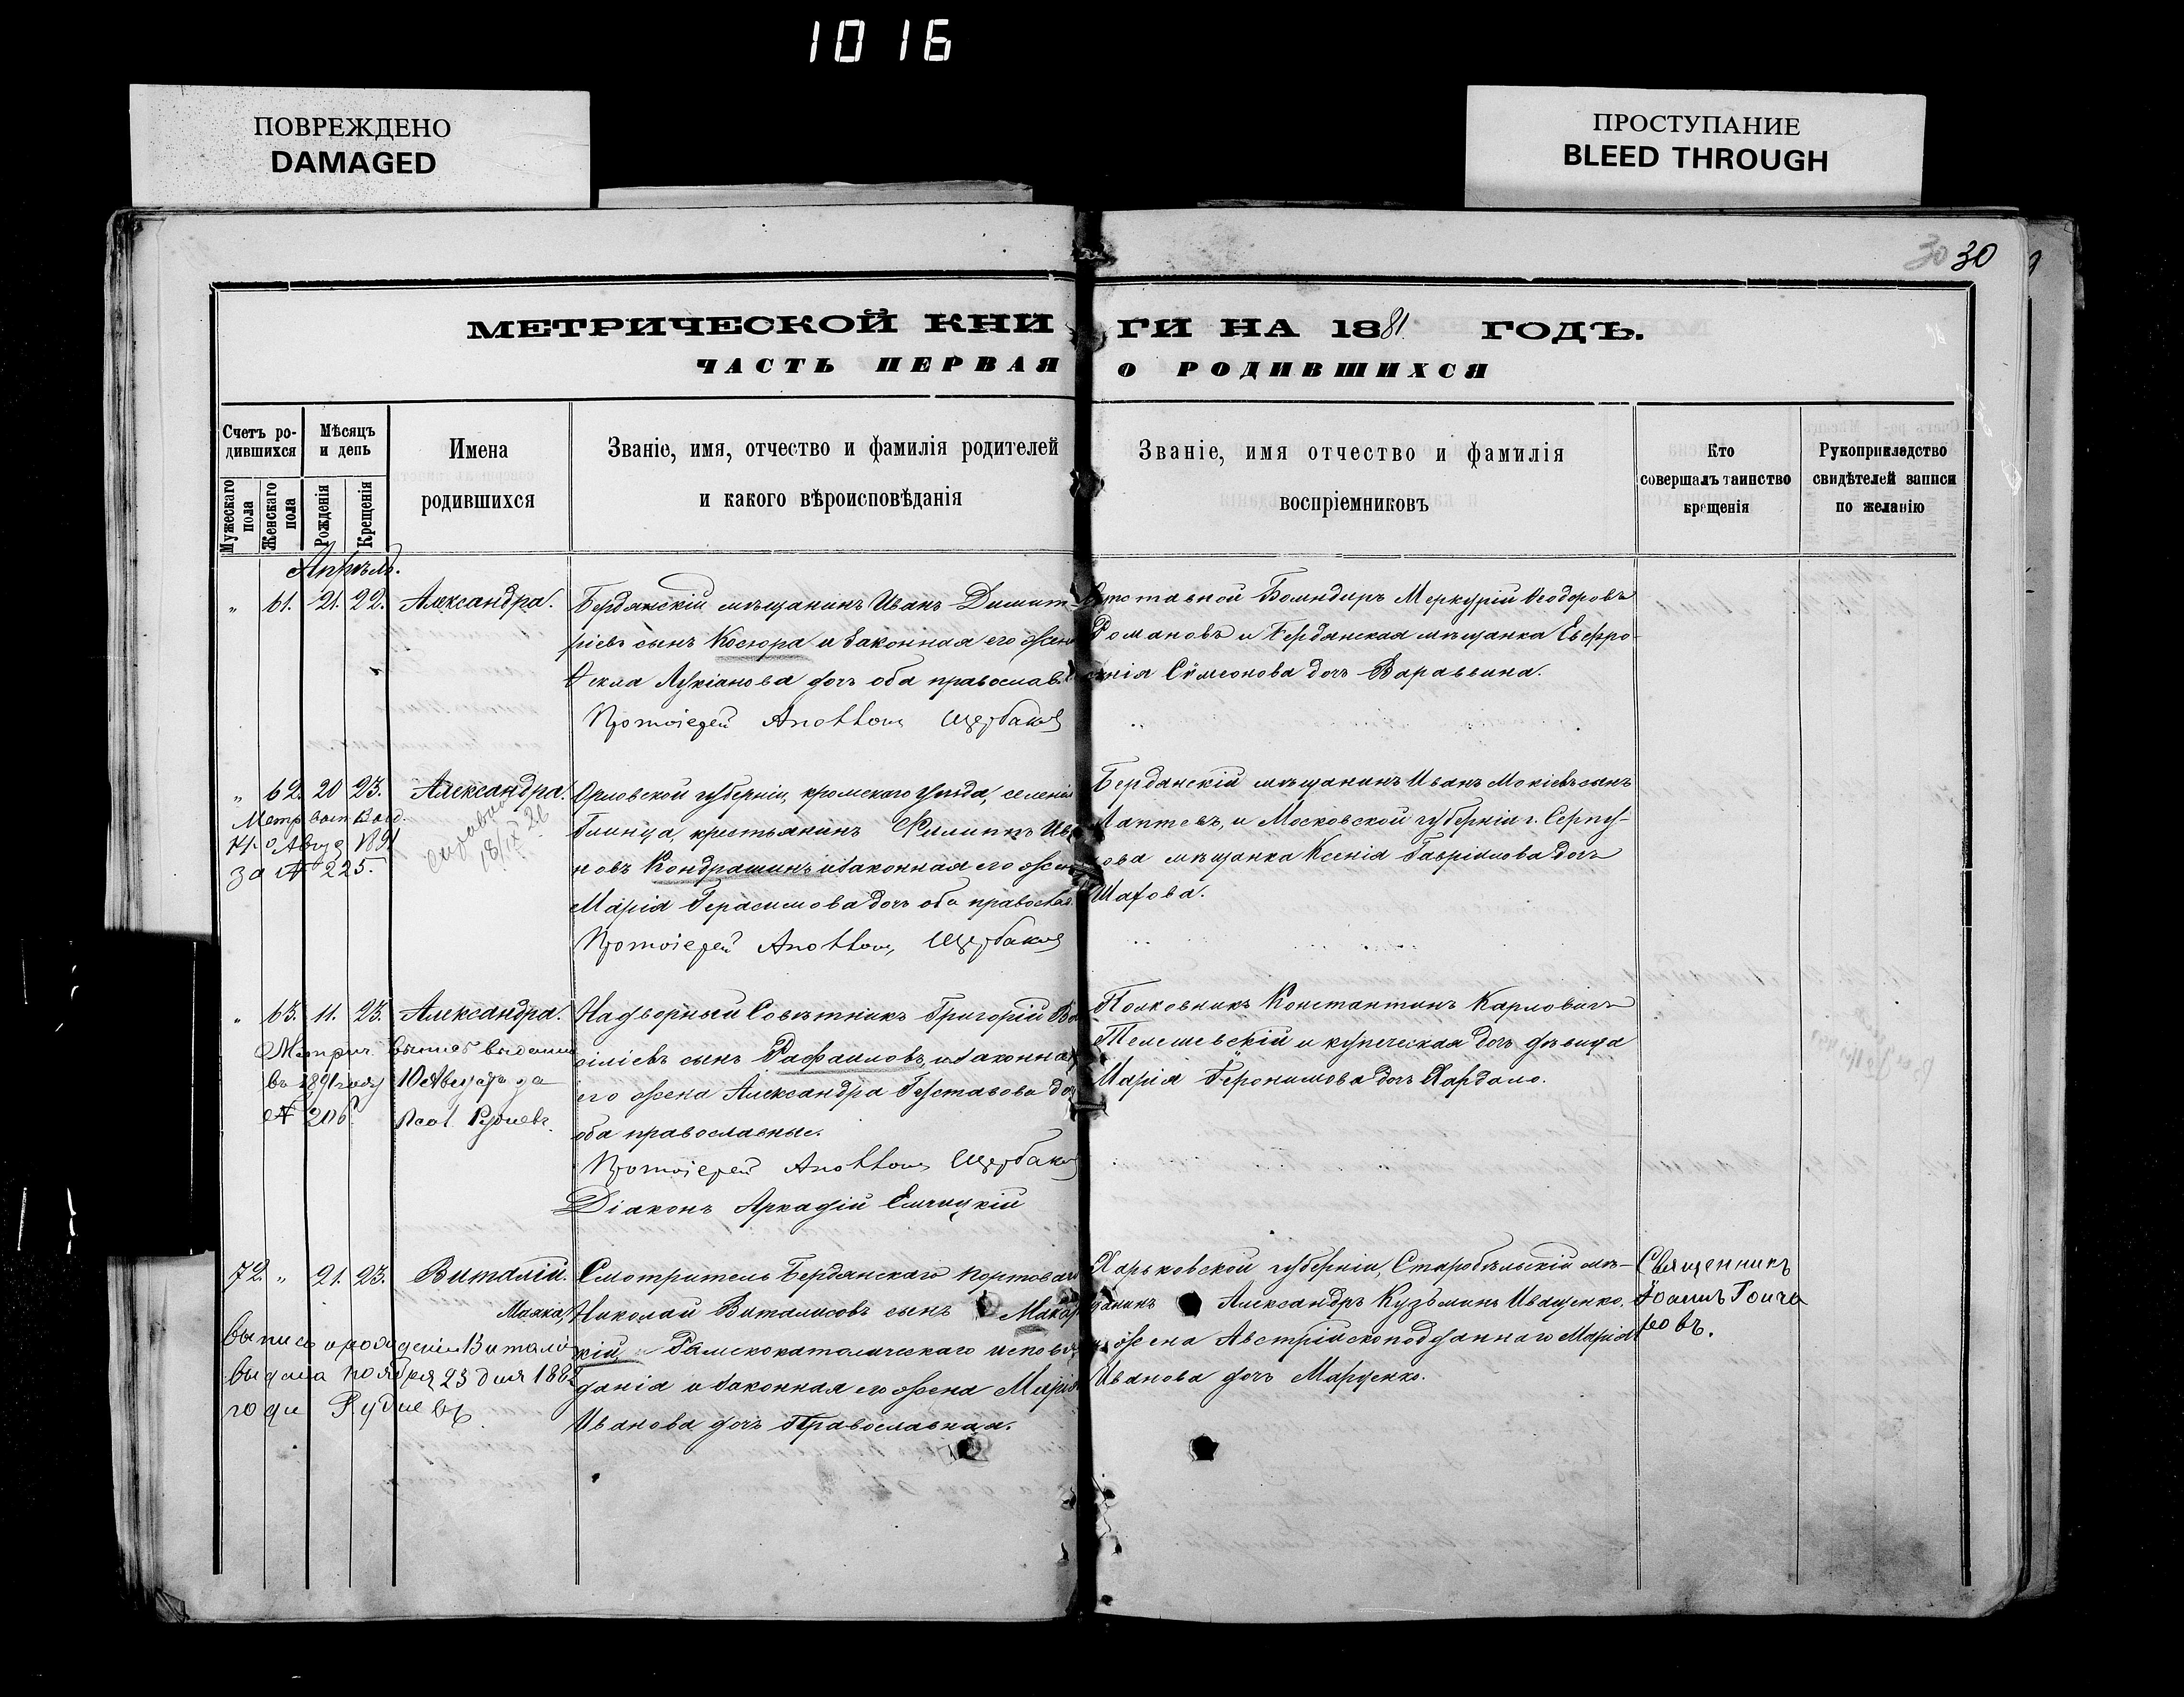 1016
ПОВРЕЖДЕНО
DAMAGED
ПРОСТУПАНИЕ
BLEED THROUGH
30 30
МЕТРИЧЕСКОЙ КНИ ГИ НА 1881 ГОДЪ.
ЧАСТЬ ПЕРВАЯ О РОДИВШИХСЯ
Счетъ ро-
дившихся
Мужескаго пола
Женскаго пола
Мѣсяцъ
и день
Рожденія
Крещенія
Имена
родившихся
Званіе, имя, отчество и фамилія родителей
и какого вѣроисповѣданія
Званіе, имя отчество и фамилія
воспріемниковъ
Кто
совершалъ таинство
крещенія
Рукоприкладство
свидѣтелей записи
по желанію
Апрѣль.
" 61. 21. 22. Александра.
Бердянскій мѣщанинъ Иванъ Димит-
ріевъ сынъ Косюра и законная его жена
Ѳекла Лукіанова дочь оба православ.
Протоіерей Аполлонъ Щербаковъ
Отставной Бомбдиръ Меркурій Ѳеодоровъ
Романовъ и Бердянская мѣщанка Евфро-
Сѵмеонова дочь Вараввина.
" 62. 20 23. Александра.
Метр. вып. выд.
за № 225.
18/IX 26
Орловской губерніи, кромскаго уѣзда, селенія
Глинца, крестьянинъ Филиппъ Ива
новъ Кондрашинъ и законная его жена
Марія Герасимова дочь оба православ.
Протоіерей Аполлонъ Щербаковъ
Бердянскій мѣщанинъ Иванъ Мокіевъ сынъ
Лаптевъ, и Московской губерніи г. Серпу-
хова мѣщанка Ксенія Гавріилова дочь
Шахова.
" 63. 11. 23. Александра.
Метрич. выпись выдана
въ 1891 году 10 Августа за
№ 206. Псал. Рудневъ.
Надворный Совѣтникъ Григорій Ва
силіевъ сынъ Рафаиловъ, и законная
его жена Александра Густавова дочь
оба православные.
Протоіерей Аполлонъ Щербаковъ
Діаконъ Аркадій Емчицкій
Полковникъ Константинъ Карловичъ
Телешевскій и купеческая дочь дѣвица
Марія Іеронимова дочь Хардало.
72. " 21. 23. Виталій.
выпись о рожденіи Виталі
выдана ноября 23 дня 1882
года Рудневъ
Смотритель Бердянскаго портоваго
Маяка, Николай Виталисовъ сынъ Мака
кій Римскокатолическаго исповѣ
данія и законная его жена Марія
Иванова дочь Православная.
Харьковской губерніи, Старобѣльскій мѣ-
щанинъ Александръ Кузьминъ Иващенко.
и жена Австрійскоподданнаго Марія
Иванова дочь Марценко.
Священникъ
Іоаннъ Гонча
ровъ.